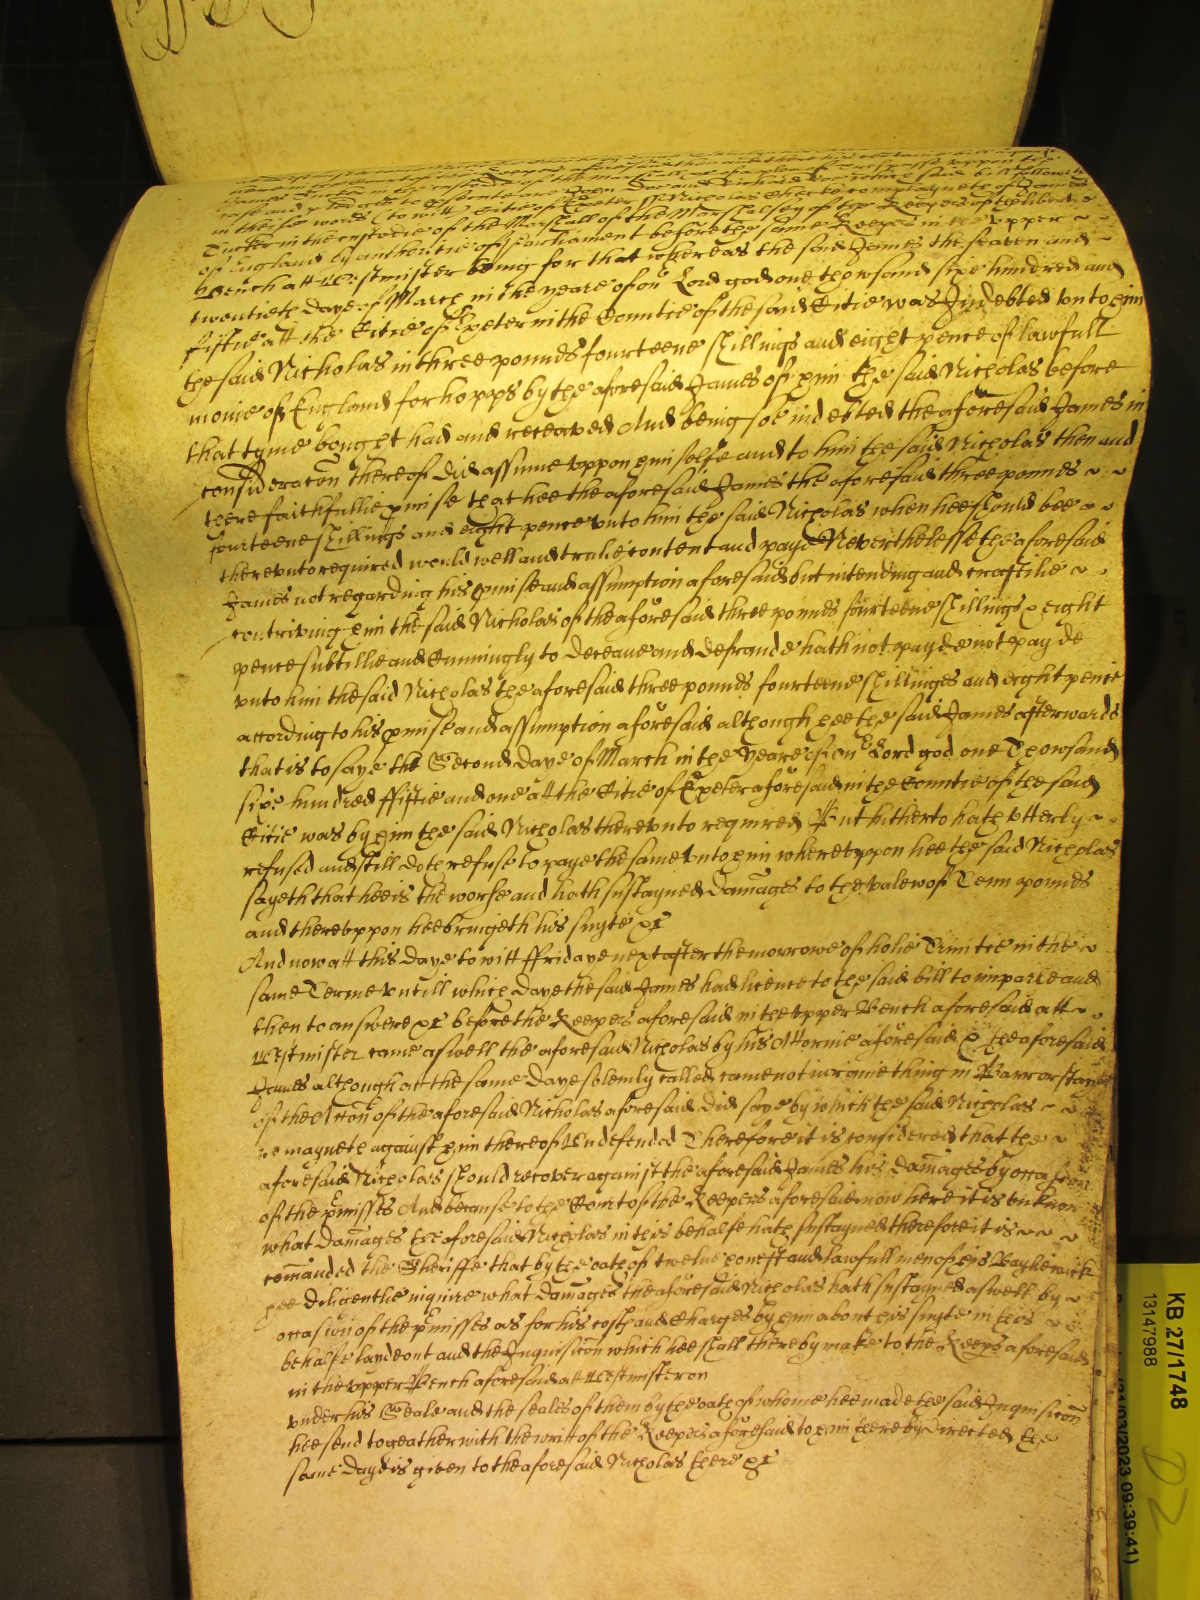 James Tucker in the custodie of the Marshall
case and pledges to prosecute John Doe and Richard Roe which said bill followeth
in these words (to witt) Citie of Exeter ss Nicholas complayneth of James
Tucker in the custodie of the Marshall of the Marshalsey of the Keepers of the libertie
of England by authoritie of Parliament before the same Keepers in the upper
Bench att Westminster being for that whereas the said James the seaven and
twentieth daye of March in the yeare of our Lord god one thowsand sixe hundred and
fiftie att the Citie of Exeter in the Countie of the said Citie was Indebted unto him
the said Nicholas in three pounds fourteene shillings and eight pence of lawfull
monie of England for hopps by the aforesaid James of him the said Nicholas before
that tyme bought had and receaved And being soe indebted the aforesaid James in
consideracon thereof did assume uppon himselfe and to him the said Nicholas then and
there faithfullie pmise that hee the aforesaid James the aforesaid three pounds
fourteene shillings and eight pence unto him the said Nicholas when hee should bee
thereunto required would well and trulie content and paye Neverthelesse the aforesaid
James not regarding his pmise and assumption aforesaid but intending and craftilie
contriving him the said Nicholas of the aforesaid three pounds fourteene shillings & eight
pence subtillie and Cunningly to deceave and defraude hath not payde not payde
unto him the said Nicholas the aforesaid three pounds fourteene shillinges and eight pence
according to his pmise and assumption aforesaid although hee the said James afterwards
that is to saye the Second daye of March in the yeare of our Lord god one Thowsand
sixe hundred fiftie and one att the Citie of Exeter aforesaid in the Countie of the said
Citie was by him the said Nicholas thereunto required But hitherto hath utterly
refused and still doth refuse to paye the same unto him whereuppon hee the said Nicholas
sayeth that hee is the worse and hath sustayned damages to the valew of Tenn pounds
and thereuppon hee bringeth his suyte &c
And now att this daye to witt ffridaye next after the morrowe of holie Trinitie in this
same Terme untill which daye the said James had licence to the said bill to imparle and
then to answere &c before the Keepers aforesaid in the upper Bench aforesaid att
Westminster came aswell the aforesaid Nicholas by his Attornie aforesaid & the aforesaid
James although at the same daye solemly called came not nor anie thing in Barr or staye
of the Accon of the aforesaid Nicholas aforesaid did saye by which the said Nicholas
remayneth against him thereof Undefended Therefore it is considered that the
aforesaid Nicholas should recover against the aforesaid James his damages by occasion
of the pmisses And because to the Court of the Keepers aforesaid now here it is unknown
what damages the aforesaid Nicholas in this behalfe hath sustayned therefore it is
comanded the Sheriffe that by the oath of twelve honest and lawfull men of his Baylewick
hee diligentlie inquire what damages the aforesaid Nicholas hath sustayned aswell by
occasion of the pmisses as for his costs and Charges by him about his suyte in this
behalfe layde out and the Inquisicon which hee shall thereby make to the Keeps aforesaid
in the upper Bench aforesaid att Westminster on
under his Seale and the seales of them by the oath of whome hee made the said Inquisicon
hee send togeather with the writ of the Keepers aforesaid to him thereby directed the
same daye is given to the aforesaid Nicholas there &c
KB 27/1748
13147988
/03/2023 09:39:41)
D2